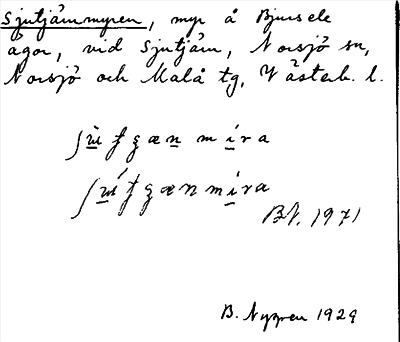 Sjutjärnmyren, myr å Bjursele
ägor, vid Sjutjärn, Norsjö sn,
Norsjö och Malå tg, Västerb. l.
mira
mira
1971
B. Nygren 1929